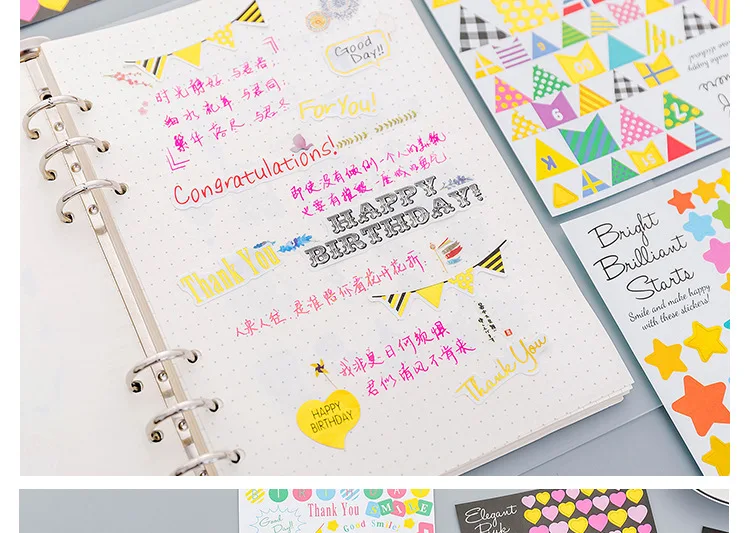 Good
Day!!
时光静好 与君语
细水流年 与君同
繁华落尽 与君老
For You!
Congratulations!
即使没有做倒一个人的英雄
HAPPY
BIRTHDAY!
Thank You
人来人往,是谁陪你看花开花折.
我非夏日何须惧
君似清风不肯来
Thank You
HAPPY
BIRTHDAY
K
9
Bright
Brilliant
Starts
Smile and make happy
with these stickers!
Good
Day!
Thank You
Good Smile!
Elegant
Pink